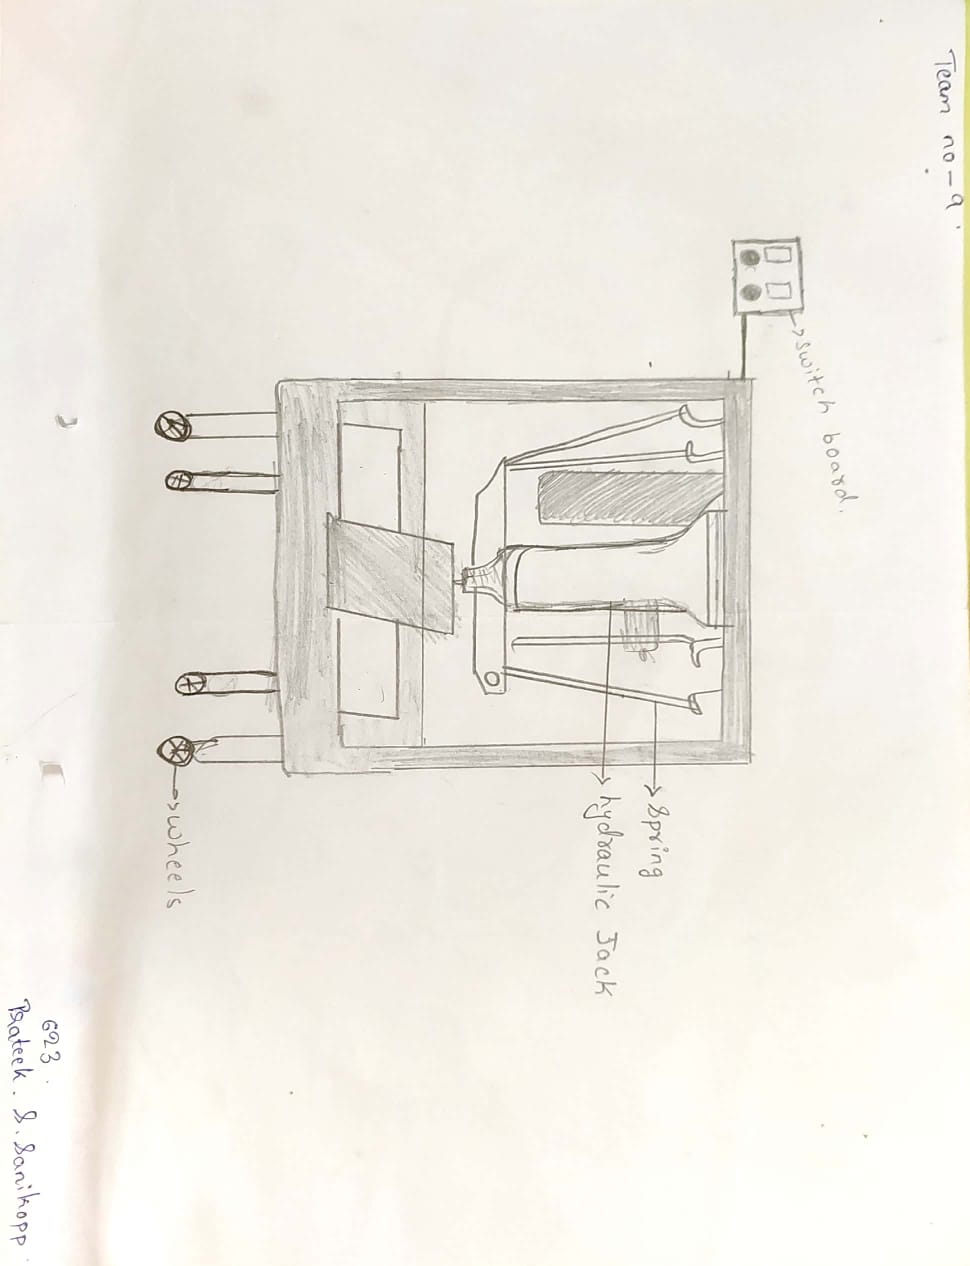 Team no-9.
switch board.
Spring
hydraulic Jack
wheels
623
Prateek. S. Sanikopp